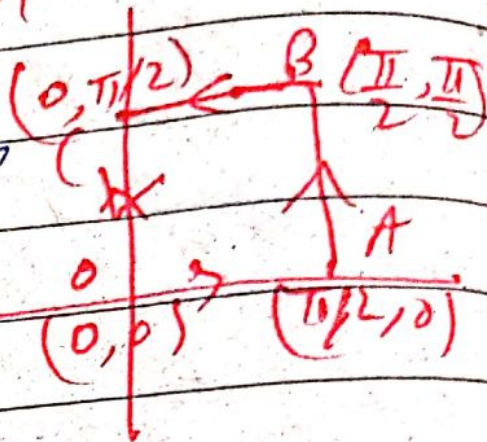 (0, π/2) B (π/2, π/2)
C
A
0
(0, 0) (π/2, 0)